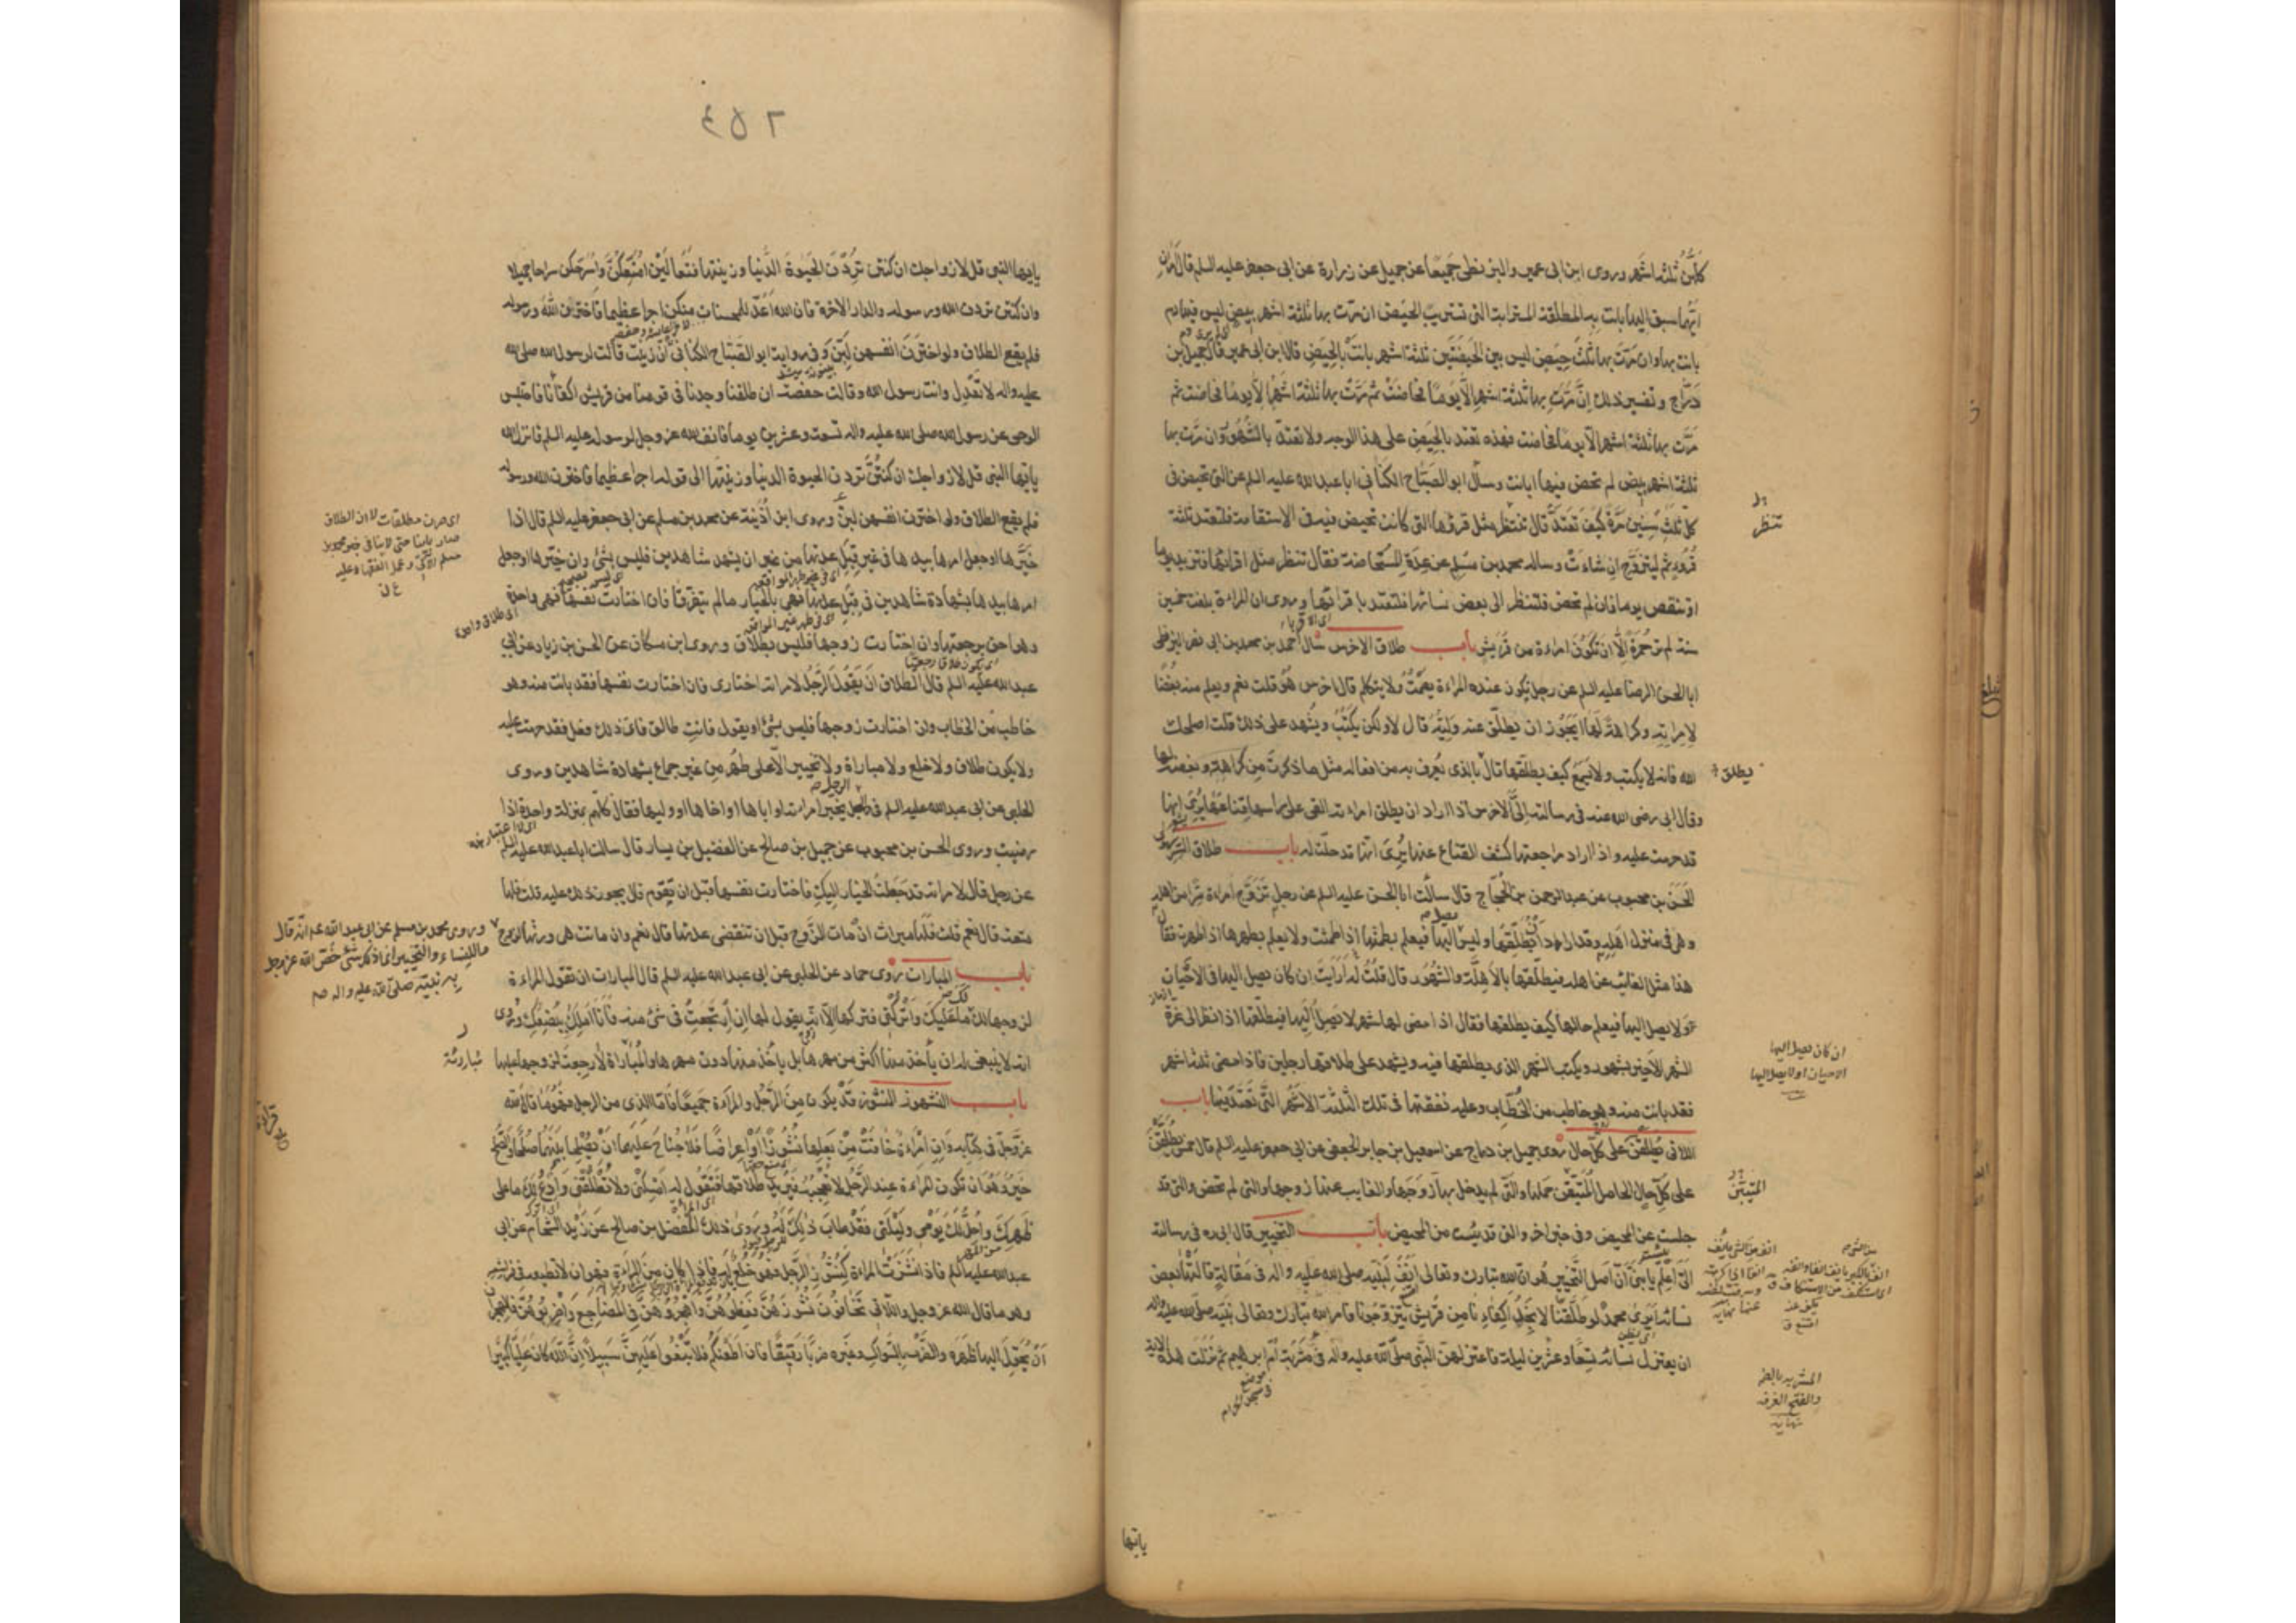 كلهن ثلثة اشهر وروى ابن ابى عمير والبزنطى جميعا عن جميل عن زرارة عن ابى جعفر عليه السلم قال امران
ايهما سبق اليها بانت به المطلقة المسترابة التى تستريب الحيض ان مرت بها ثلثة اشهر بيض ليس فيها دم
بانت بها وان مرت بها ثلث حيض ليس بين الحيضتين ثلثة اشهر بانت بالحيض قال ابن ابى عمير قال جميل بن
دراج وتفسير ذلك ان مرت بها ثلثة اشهر الا يوما فحاضت ثم مرت بها ثلثة اشهر الا يوما فحاضت ثم
مرت بها ثلثة اشهر الا يوما فحاضت فهذه تعتد بالحيض على هذا الوجه ولا تعتد بالشهور وان مرت بها
ثلثة اشهر بيض لم تحض فيها بانت وسأل ابو الصباح الكنانى ابا عبد الله عليه السلم عن التى تحيض فى
كل ثلث سنين مرة كيف تعتد قال تنتظر مثل قروئها التى كانت تحيض فيه فى الاستقامة فلتعتد ثلثة
قروء ثم ليتزوج ان شاءت وساله محمد بن مسلم عن عدة المستحاضة فقال تنتظر مثل اقرائها فتزيد يوما
او تنقص يوما فان لم تحض فلتنظر الى بعض نسائها فلتعتد باقرائها وروى ان المراءة بلغت خمسين
سنة لم تر حمرة الا ان تكون امراءة من قريش باب طلاق الاخرس سأل احمد بن محمد بن ابى نصر البزنطى
ابا الحسن الرضا عليه السلم عن رجل يكون عنده المراءة يصمت ولا يتكلم قال اخرس هو قلت نعم ويعلم منه بغضا
لامراته وكراهة لها ايجوز ان يطلق عنه وليه قال لا ولكن يكتب ويشهد على ذلك قلت اصلحك
الله فانه لا يكتب ولا يسمع كيف يطلقها قال بالذى يعرف به من افعاله مثل ما ذكرت من كراهته وبغضه لها
وقال ابى رضى الله عنه فى رسالته الى الاخرس اذا اراد ان يطلق امراءته القى على راسها قناعها يرى انها
قد حرمت عليه واذا اراد مراجعتها كشف القناع عنها يرى انها قد حلت له باب طلاق السر روى
الحسن بن محبوب عن عبد الرحمن بن الحجاج قال سألت ابا الحسن عليه السلم عن رجل تزوج امراءة سرا من اهله
وهى فى منزل اهله وقد اراد ان يطلقها وليس يصل اليها فيعلم بطمثها اذا طمثت ولا يعلم بطهرها اذا طهرت فقال
هذا مثل الغائب عن اهله فيطلقها بالاهلة والشهور قال قلت له ارايت ان كان يصل اليها فى الاحيان
ولا يصل اليها فيعلم حالها كيف يطلقها فقال اذا مضى لها شهر لا يصل اليها فيطلقها اذا نظر الى غرة
الشهر الاخير بشهود ويكتب الشهر الذى يطلقها فيه ويشهد على طلاقها رجلين فاذا مضى ثلثة اشهر
فقد بانت منه وهو خاطب من الخطاب وعليه نفقتها فى تلك الثلثة الاشهر التى تعتد فيها باب
اللاتى يطلقن على كل حال روى جميل بن دراج عن اسمعيل بن جابر الجعفى عن ابى جعفر عليه السلم قال خمس يطلقن
على كل حال الحامل المتيقن حملها والتى لم يدخل بها زوجها والغايب عنها زوجها والتى لم تحض والتى قد
جلست عن المحيض وفى خبر اخر والتى قد يئست من المحيض باب التخيير قال ابى ره فى رسالته
الى اعلم يا بنى ان اصل التخيير هو ان الله تبارك وتعالى انف لنبيه صلى الله عليه واله فى مقالة قالتها بعض
نسائه ايرى محمد لو طلقنا لا نجد اكفاءنا من قريش يتزوجونا فامر الله تبارك وتعالى نبيه صلى الله عليه واله
ان يعتزل نسائه تسعا وعشرين ليلة فاعتزلهن النبى صلى الله عليه واله فى مشربة ام ابرهيم ثم نزلت هذه الاية
تنتظر
يطلق
ان كان يصل اليها
الاحيان او لا يصل اليها
المشربة بالضم
والفتح الغرفة
نهاية
يايها
٢٥٤
يايها النبى قل لازواجك ان كنتن تردن الحيوة الدنيا وزينتها فتعالين امتعكن واسرحكن سراحا جميلا
وان كنتن تردن الله ورسوله والدار الاخرة فان الله اعد للمحسنات منكن اجرا عظيما فاخترن الله ورسوله
فلم يقع الطلاق ولو اخترن انفسهن لبن وفى رواية ابو الصباح الكنانى ان زينب قالت لرسول الله صلى الله
عليه واله لا تعدل وانت رسول الله وقالت حفصة ان طلقنا وجدنا فى قومنا من قريش اكفائنا فاحتبس
الوحى عن رسول الله صلى الله عليه واله تسعة وعشرين يوما فانف الله عز وجل لرسوله عليه السلم فانزل الله
يايها النبى قل لازواجك ان كنتن تردن الحيوة الدنيا وزينتها الى قوله اجرا عظيما فاخترن الله ورسوله
فلم يقع الطلاق ولو اخترن انفسهن لبن وروى ابن اذينة عن محمد بن مسلم عن ابى جعفر عليه السلم قال اذا
خيرها او جعل امرها بيدها فى غير قبل عدتها من غير ان يشهد شاهدين فليس بشئ وان خيرها او جعل
امرها بيدها بشهادة شاهدين فى قبل عدتها فهى بالخيار ما لم يتفرقا فان اختارت نفسها فهى واحدة
وهو احق برجعتها وان اختارت زوجها فليس بطلاق وروى ابن مسكان عن الحسن بن زياد عن ابى
عبد الله عليه السلم قال الطلاق ان يقول الرجل لامراته اختارى فان اختارت نفسها فقد بانت منه وهو
خاطب من الخطاب وان اختارت زوجها فليس بشئ او يقول فانت طالق فاى ذلك فعل فقد حرمت عليه
ولا يكون طلاق ولا خلع ولا مباراة ولا تخيير الا على طهر من غير جماع بشهادة شاهدين وروى
الحلبى عن ابى عبد الله عليه السلم فى الرجل يخير امراته او اباها او اخاها او وليها فقال كلهم بمنزلة واحدة اذا
رضيت وروى الحسن بن محبوب عن جميل بن صالح عن الفضيل بن يسار قال سالت ابا عبد الله عليه السلم
عن رجل قال لامراته قد جعلت الخيار اليك فاختارت نفسها قبل ان تقوم قال يجوز ذلك عليه قلت فلها
متعة قال نعم قلت فلها ميراث ان مات الزوج قبل ان تنقضى عدتها قال نعم وان ماتت هى ورثها الزوج
باب المبارات روى حماد عن الحلبى عن ابى عبد الله عليه السلم قال المبارات ان تقول المراءة
لزوجها لك ما عليك واتركنى فتركها الا انه يقول لها ان ارتجعت فى شئ منه فانا املك ببضعك وروى
انه لا ينبغى له ان يأخذ منها اكثر من مهرها بل يأخذ منها دون مهرها والمباراة لا رجعة لزوجها عليها
باب النشوز النشوز قد يكون من الرجل والمراءة جميعا فاما الذى من الرجل فهو ما قال الله
عز وجل فى كتابه وان امراءة خافت من بعلها نشوزا او اعراضا فلا جناح عليهما ان يصلحا بينهما صلحا والصلح
خير وهو ان تكون المراءة عند الرجل لا تعجبه فيريد طلاقها فتقول له امسكنى ولا تطلقنى وادع لك ما على
ظهرك واحل لك يومى وليلتى فقد طاب ذلك له وروى ذلك المفضل بن صالح عن زيد الشحام عن ابى
عبد الله عليه السلم فاذا نشزت المراءة كنشوز الرجل فهو خلع فاذا كان من المراءة فهو ان لا تطيعه فى فراشه
وهو ما قال الله عز وجل واللاتى تخافون نشوزهن فعظوهن واهجروهن فى المضاجع واضربوهن فالهجران
ان يحول اليها ظهره والضرب بالسواك وغيره ضربا رقيقا فان اطعنكم فلا تبغوا عليهن سبيلا ان الله كان عليا كبيرا
وروى محمد بن مسلم عن ابى عبد الله عم انه قال
ما للنساء والتخيير انما ذلك شئ خص الله عز وجل
به نبيه صلى الله عليه واله صم